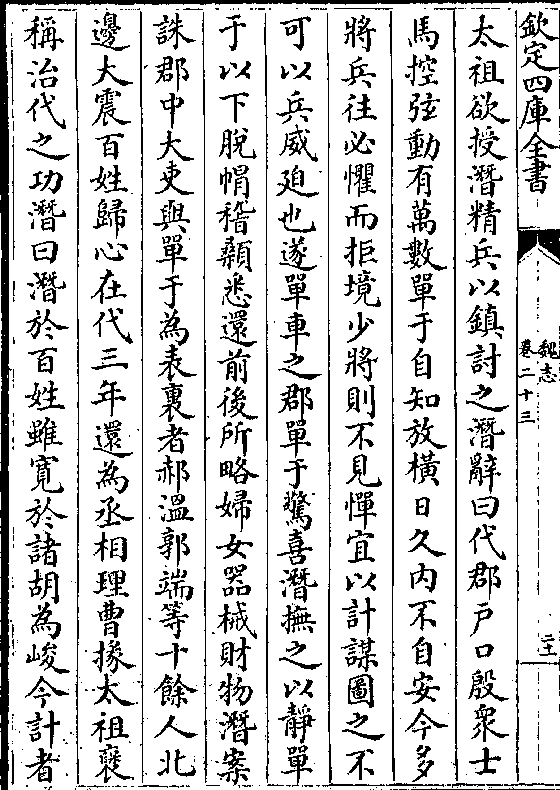 欽定四庫全書
魏志
卷二十三
二十
太祖欲授潛精兵以鎮討之潛辭曰代郡戶口殷衆士
馬控弦動有萬數單于自知放橫日久内不自安今多
將兵往必懼而拒境少將則不見憚宜以計謀圖之不
可以兵威廹也遂單車之郡單于驚喜潛撫之以靜單
于以下脫帽稽顙悉還前後所略婦女器械財物潛案
誅郡中大吏與單于為表裏者郝溫郭端等十餘人北
邊大震百姓歸心在代三年還為丞相理曹掾太祖褒
稱治代之功潛曰潛於百姓雖寛於諸胡為峻今計者